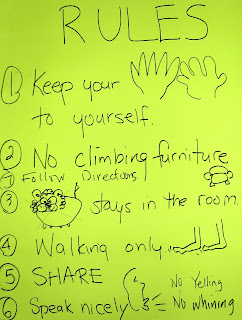 RULES
1 Keep your
to yourself.
2 No climbing furniture
7 Follow Directions
3 stays in the room.
4 Walking only
5 SHARE No Yelling
6 Speak nicely = No Whining